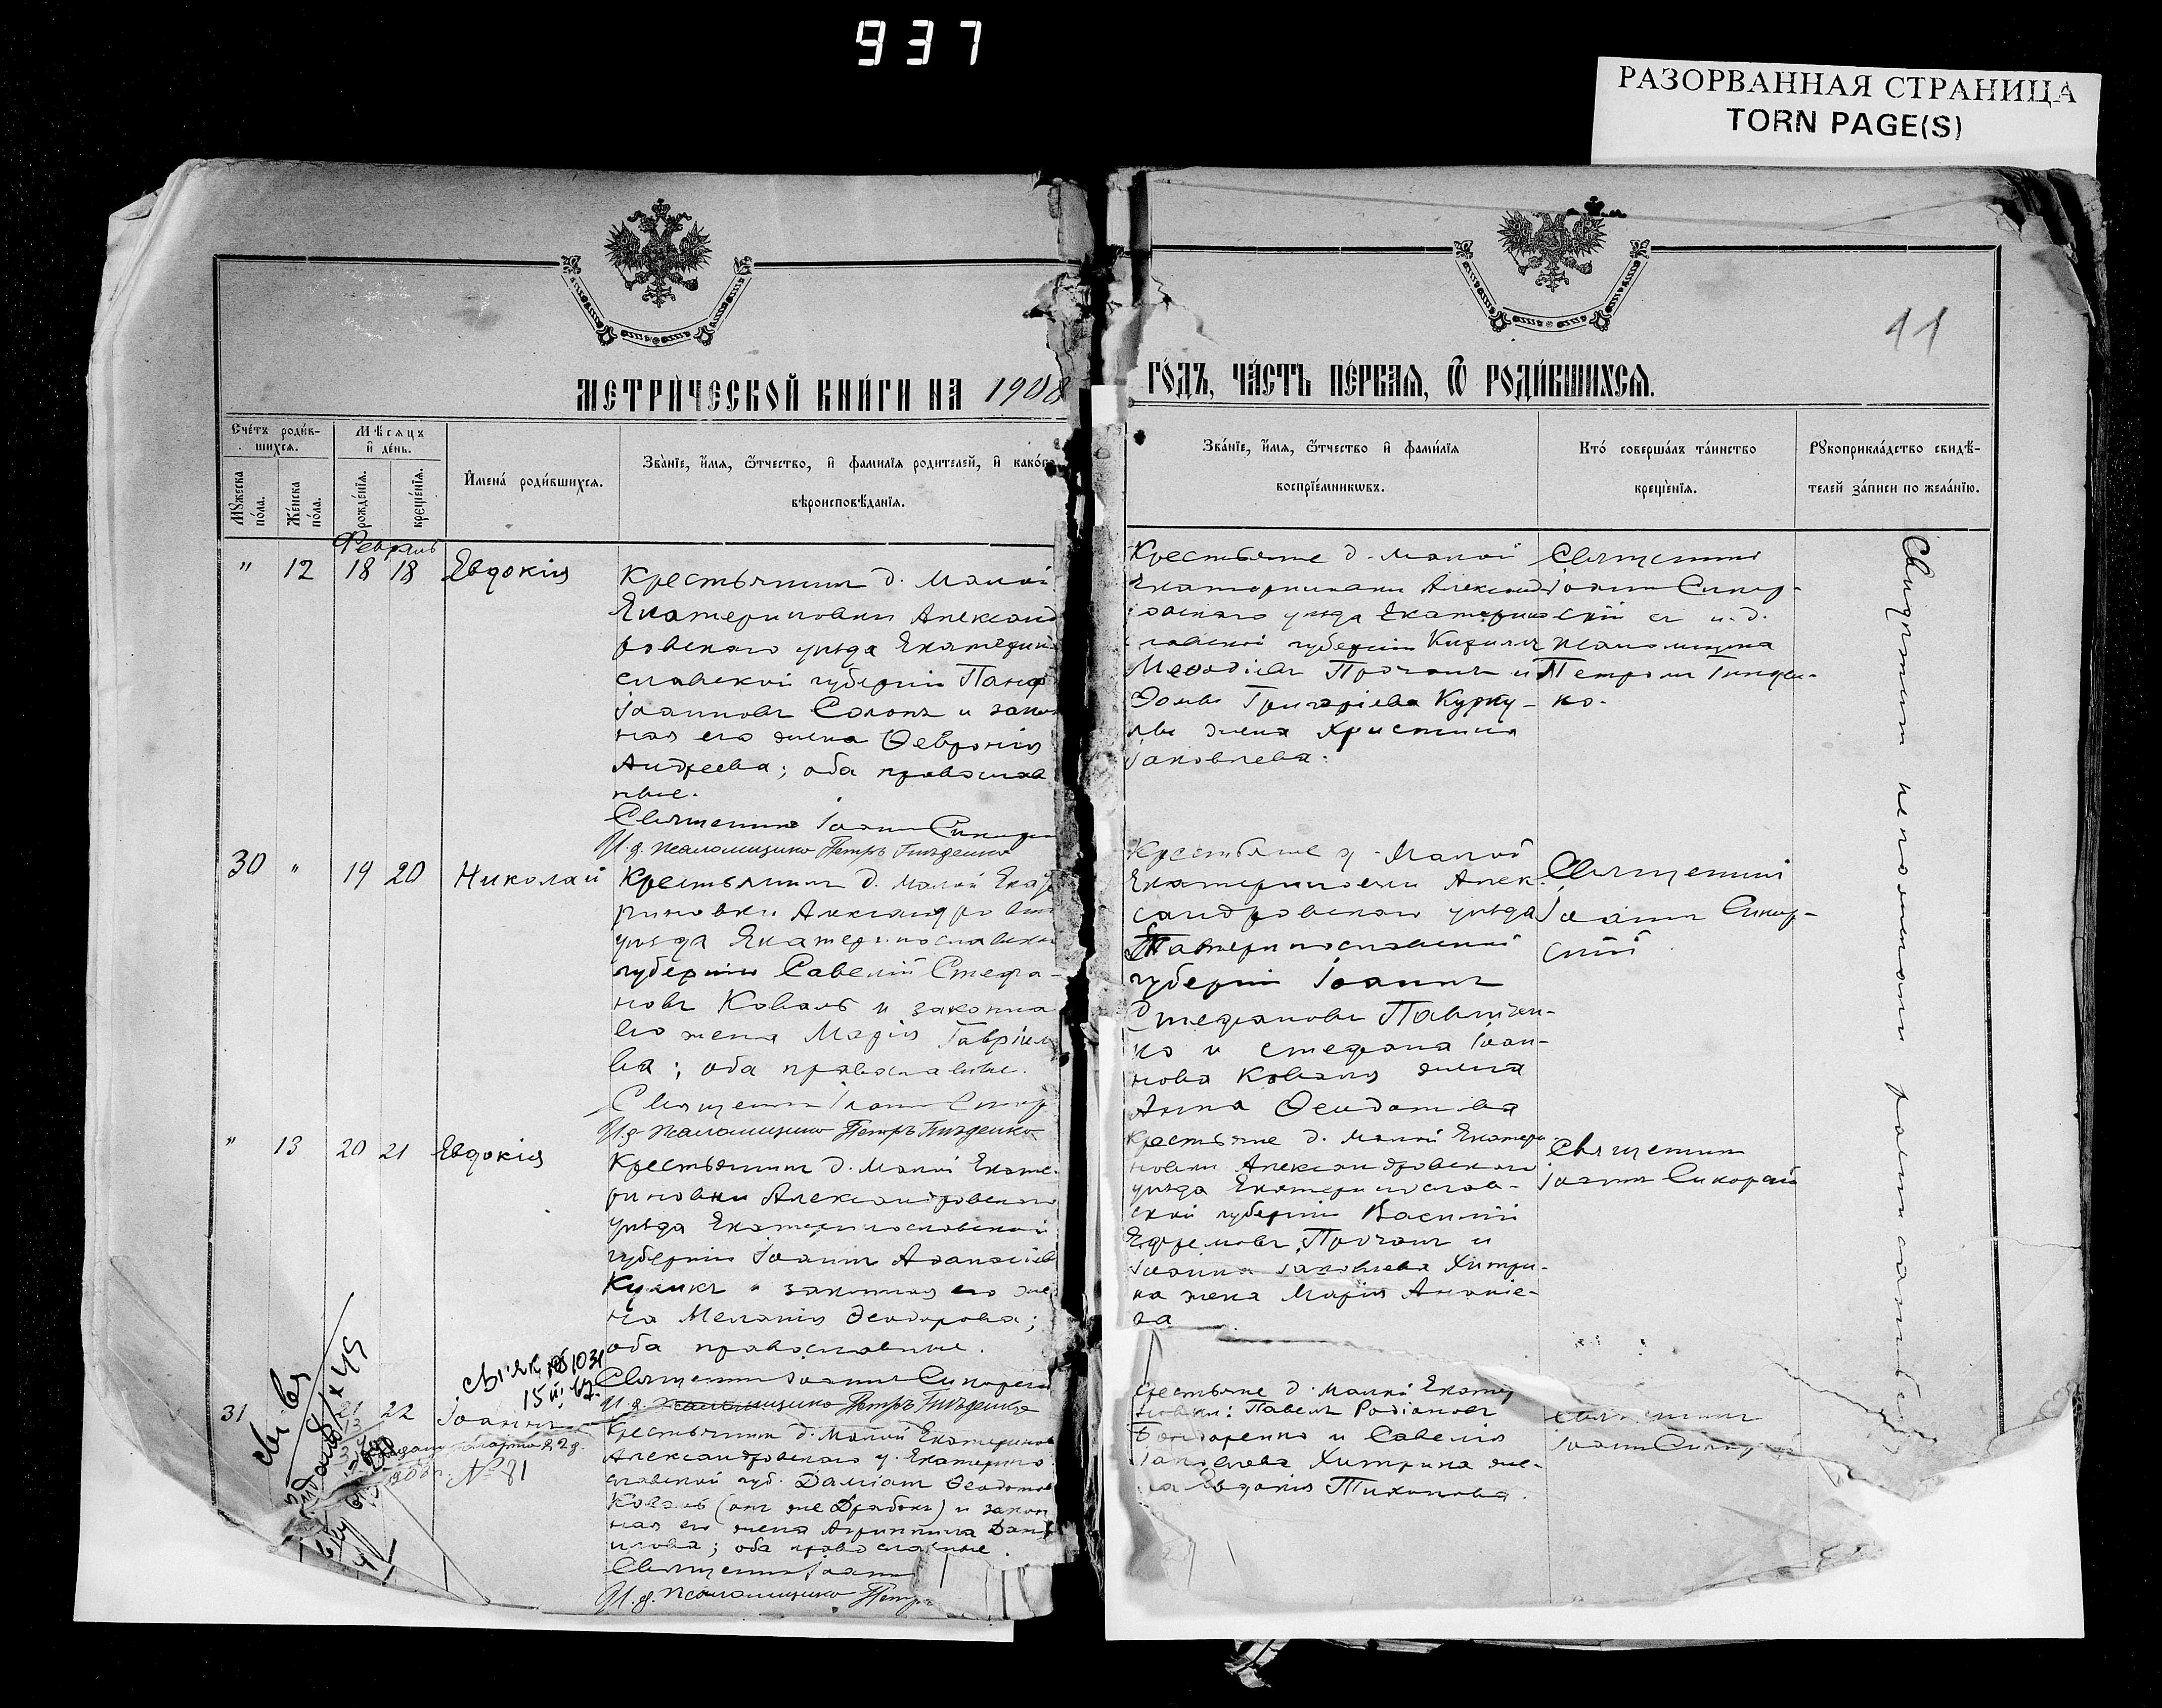 937
РАЗОРВАННАЯ СТРАНИЦА
TORN PAGE(S)
11
МЕТРИ́ЧЕСКОЙ КНИ́ГИ НА 1908
ГО́ДЪ, ЧА́СТЬ ПЕ́РВАЯ, Ѿ РОДИ́ВШИХСЯ.
Сче́тъ роди́в-
шихся.
Мѣ́сяцъ
и де́нь.
Мꙋ́жеска
по́ла.
Же́нска
по́ла.
рожде́нїя.
креще́нїя.
Имена́ роди́вшихся.
Зва́нїе, и́мя, ѻ҆́тчество, и фами́лїя родителей, и како́го
вѣроисповѣ́данїя.
Зва́нїе, и́мя, ѻ҆́тчество и фами́лїя
воспрїе́мникѡвъ.
Кто́ соверша́лъ та́инство
креще́нїя.
Рꙋкоприкла́дство свидѣ́-
телей за́писи по жела́нїю.
Февраль
" 12 18 18 Евдокія
Крестьянинъ д. Малой
Екатериновки Александ
ровскаго уѣзда Екатерин
славской губерніи Панф
Іоанновъ Солопъ и закон
ная его жена Ѳевронія
Андреева; оба православ
ные.
Священникъ Іоаннъ Сикорс
И. д. псаломщика Петръ Гнѣденко
Крестьяне д. Малой
Екатериновки Александ
ровскаго уѣзда Екатерино
славской губерніи Кириллъ
Меѳодіевъ Прочанъ и
Ѳомы Григоріева Курку-
лы жена Христина
Іаковлева.
Священникъ
Іоаннъ Сикор-
скій съ и. д.
псаломщика
Петромъ Гнѣден-
ко.
30 " 19 20 Николай
Крестьянинъ д. Малой Екат
риновки Александровск
уѣзда Екатеринославской
губерніи Савелій Стефа-
новъ Коваль и законна
его жена Марія Гавріило
ва; оба православные.
Священникъ Іоаннъ Сикор
И. д. псаломщика Петръ Гнѣденко
Крестьяне д. Малой
Екатериновки Алек-
сандровскаго уѣзда
Екатеринославской
губерніи Іоаннъ
Стефановъ
ко и Стефана Іоан-
нова Коваля жена
Анна Ѳеодотова
Священникъ
Іоаннъ Сикор-
скій
" 13 20 21 Евдокія
Крестьянинъ д. Малой Екате-
риновки Александровскаго
уѣзда Екатеринославской
губерніи Іоаннъ Аѳанасіев
Куликъ и законная его же
на Меланія Ѳеодорова;
оба православные.
Священникъ Іоаннъ Сикорскій
И. д. псаломщика Петръ Гнѣденко
Крестьяне д. Малой Екатери
новки Александровскаго
уѣзда Екатеринослав-
ской губерніи Василій
Ефремовъ Прочанъ и
Іоанна Іаковлева Хитри-
на жена Марія Ананіе-
ва
Священникъ
Іоаннъ Сикорскій
31 21 22 Іоаннъ
№ 81
Крестьянинъ д. Малой Екатеринов
Александровскаго у. Екатерино
славской губ. Даміанъ Ѳеодотов
Коваль (онъ же Драбокъ) и закон
ная его жена Агриппина Дан
илова; оба православные.
Священникъ Іоанн
И. д. псаломщика Петръ
рестьяне д. Малой Екатер
новки: Павелъ Родіоновъ
Бондаренко и Савелія
Іаковлева Хитрина же-
на Евдокія Тихонова.
Священникъ
Іоаннъ Сикор